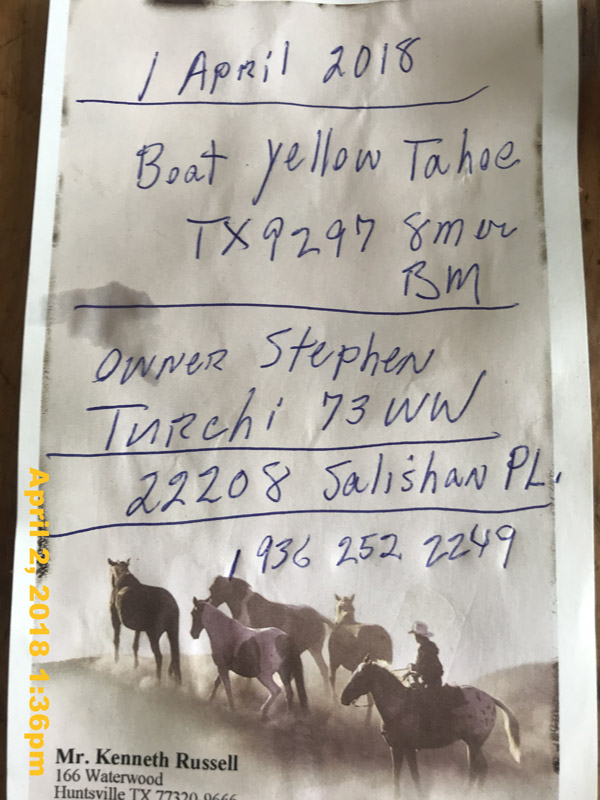 1 April 2018
Boat yellow Tahoe
TX 9297
BM
OWNER Stephen
Turchi 73 WW
22208 Salishan PL.
1 936 252 2249
Mr. Kenneth Russell
166 Waterwood
Huntsville TX 77320-9666
April 2, 2018 1:36pm